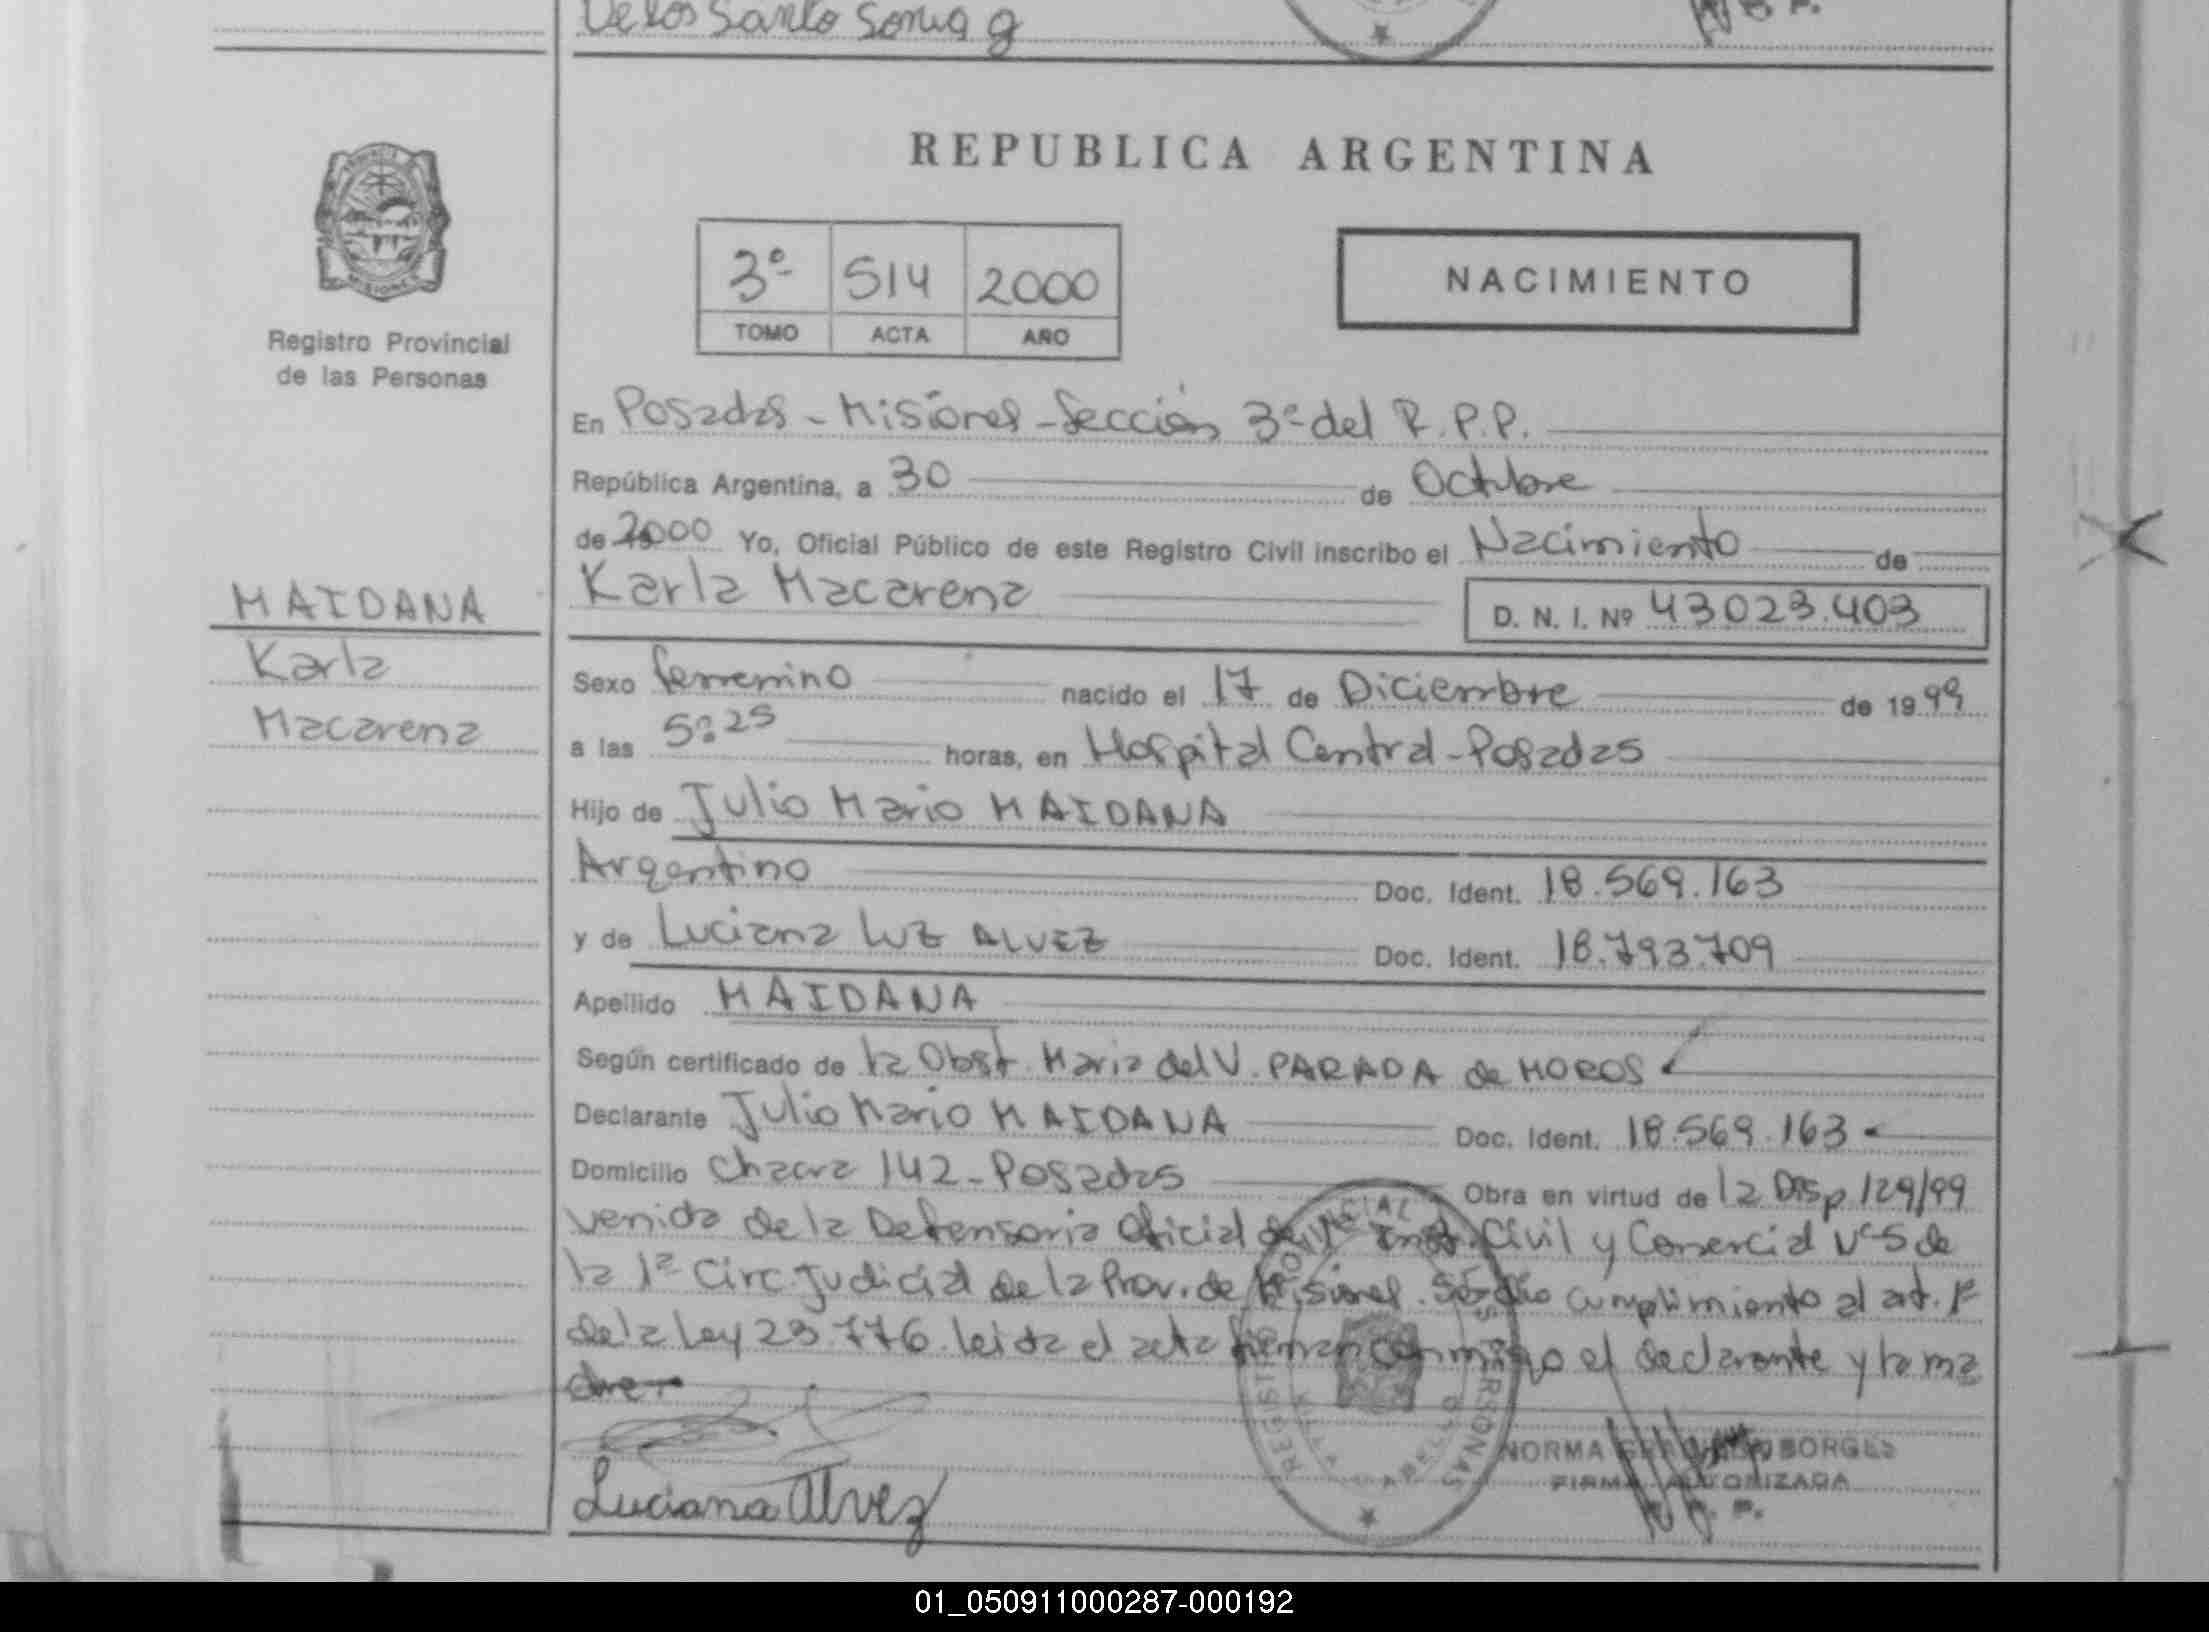 De los Santo Sonia g
REPUBLICA ARGENTINA
3º 514 2000
TOMO ACTA AÑO
NACIMIENTO
Registro Provincial
de las Personas
En Posadas - Misiones - Sección 3º del R.P.P.
República Argentina, a 30 de Octubre
de 2000 Yo, Oficial Público de este Registro Civil inscribo el Nacimiento de
Karla Macarena D. N. I. Nº 43023.403
MAIDANA
Karla
Macarena
Sexo femenino nacido el 17 de Diciembre de 1999
a las 5:25 horas, en Hospital Central - Posadas
Hijo de Julio Mario MAIDANA
Argentino Doc. Ident. 18.569.163
y de Luciana Luz ALVEZ Doc. Ident. 18.793.709
Apellido MAIDANA
Según certificado de la Obst. Maria del V. PARADA de MOROS
Declarante Julio Mario MAIDANA Doc. Ident. 18.569.163
Domicilio Chacra 142 - Posadas Obra en virtud de la Disp 129/99
venida de la Defensoria Oficial de 1º Inst. Civil y Comercial Nº5 de
la 1ª Circ. Judicial de la Prov. de Misiones. Se dio cumplimiento al art. 1º
de la Ley 23.776. leida el acta firman conmigo el declarante y la ma
dre.
Luciana Alvez
REGISTRO PROVINCIAL PERSONAS
NORMA BORGES
FIRMA AUTORIZADA
R. P. P.
01_050911000287-000192